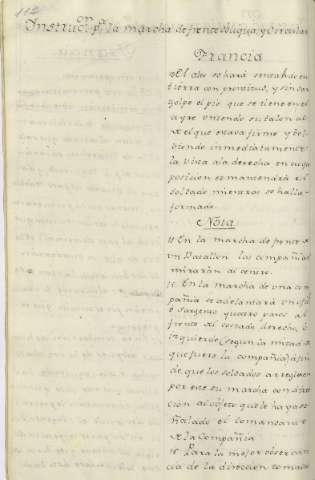 112
Instruc.on p.a la marcha de frente oblíqua, y Circular
Francia
El alto se hará sentando en
tierra con prontitud, y sin dar
golpe el pie que se tiene en el
ayre uniendo su talon al
del que estava firme y bol-
biendo inmediatamente
la vista a la derecha en cuya
posicion se mantendrá el
soldado mientras se halla
formado
Nota
En la marcha de frente de
un Batallon las compañias
mirarán al centro.
En la marcha de una com-
pañia se adelantará un cabo
o Sargento quatro pasos al
frente del costado derecho, ó
izquierdo (segun la mitad de
que fuere la compañia) á fin
de que los soldados arreglen
por este su marcha con direc-
cion al objeto que le haya se-
ñalado el comandante
de la Compañia
Para la mejor observan-
cia de la direccion tomada